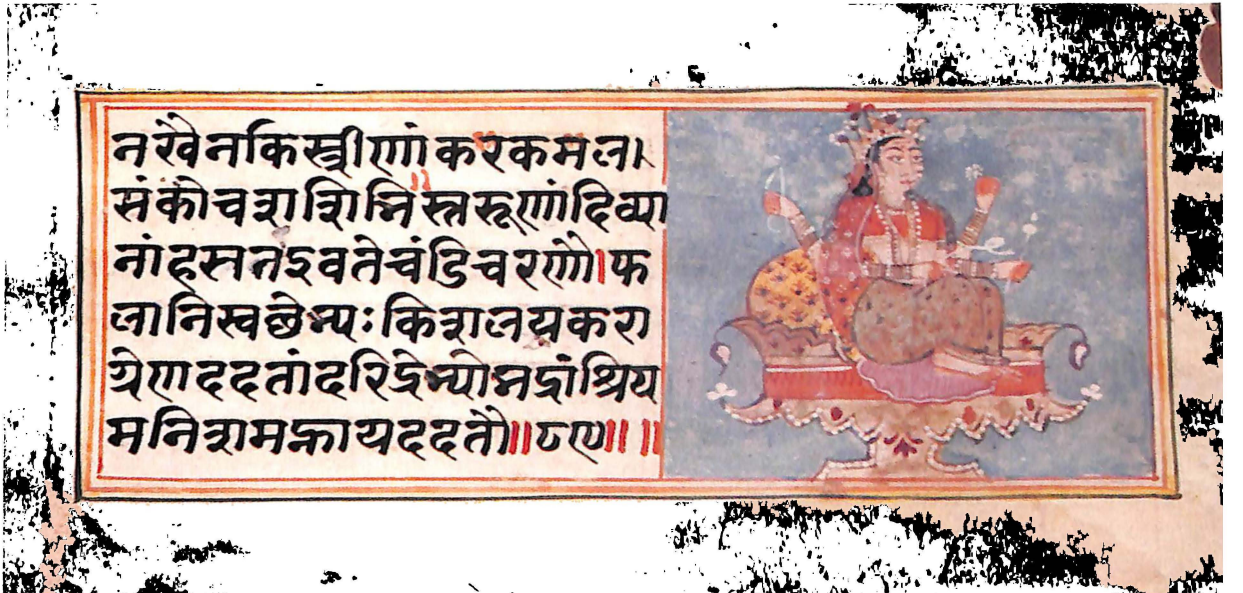 नखैनकिस्त्रीणांकरकमल।
संकोचशशिभिस्तरूणांदिव्या
नांहसतइवतेचंडिचरणौ।फ
लानिस्वछेभ्यःकिशलयकरा
ग्रेणददतांदरिद्रेभ्योभद्रांश्रिय
मनिशमह्नायददतौ॥८९॥॥